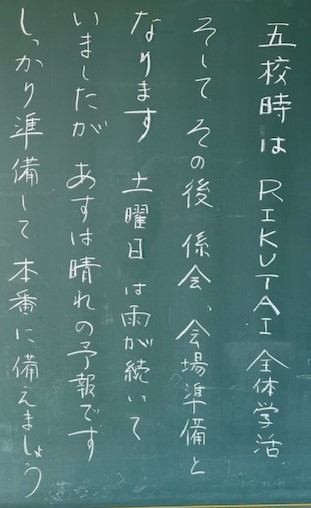 五校時は RIKUTAI 全体学活
そして その後 係会、会場準備と
なります 土曜日は雨が続いて
いましたが あすは晴れの予報です
しっかり準備して 本番に備えましょう